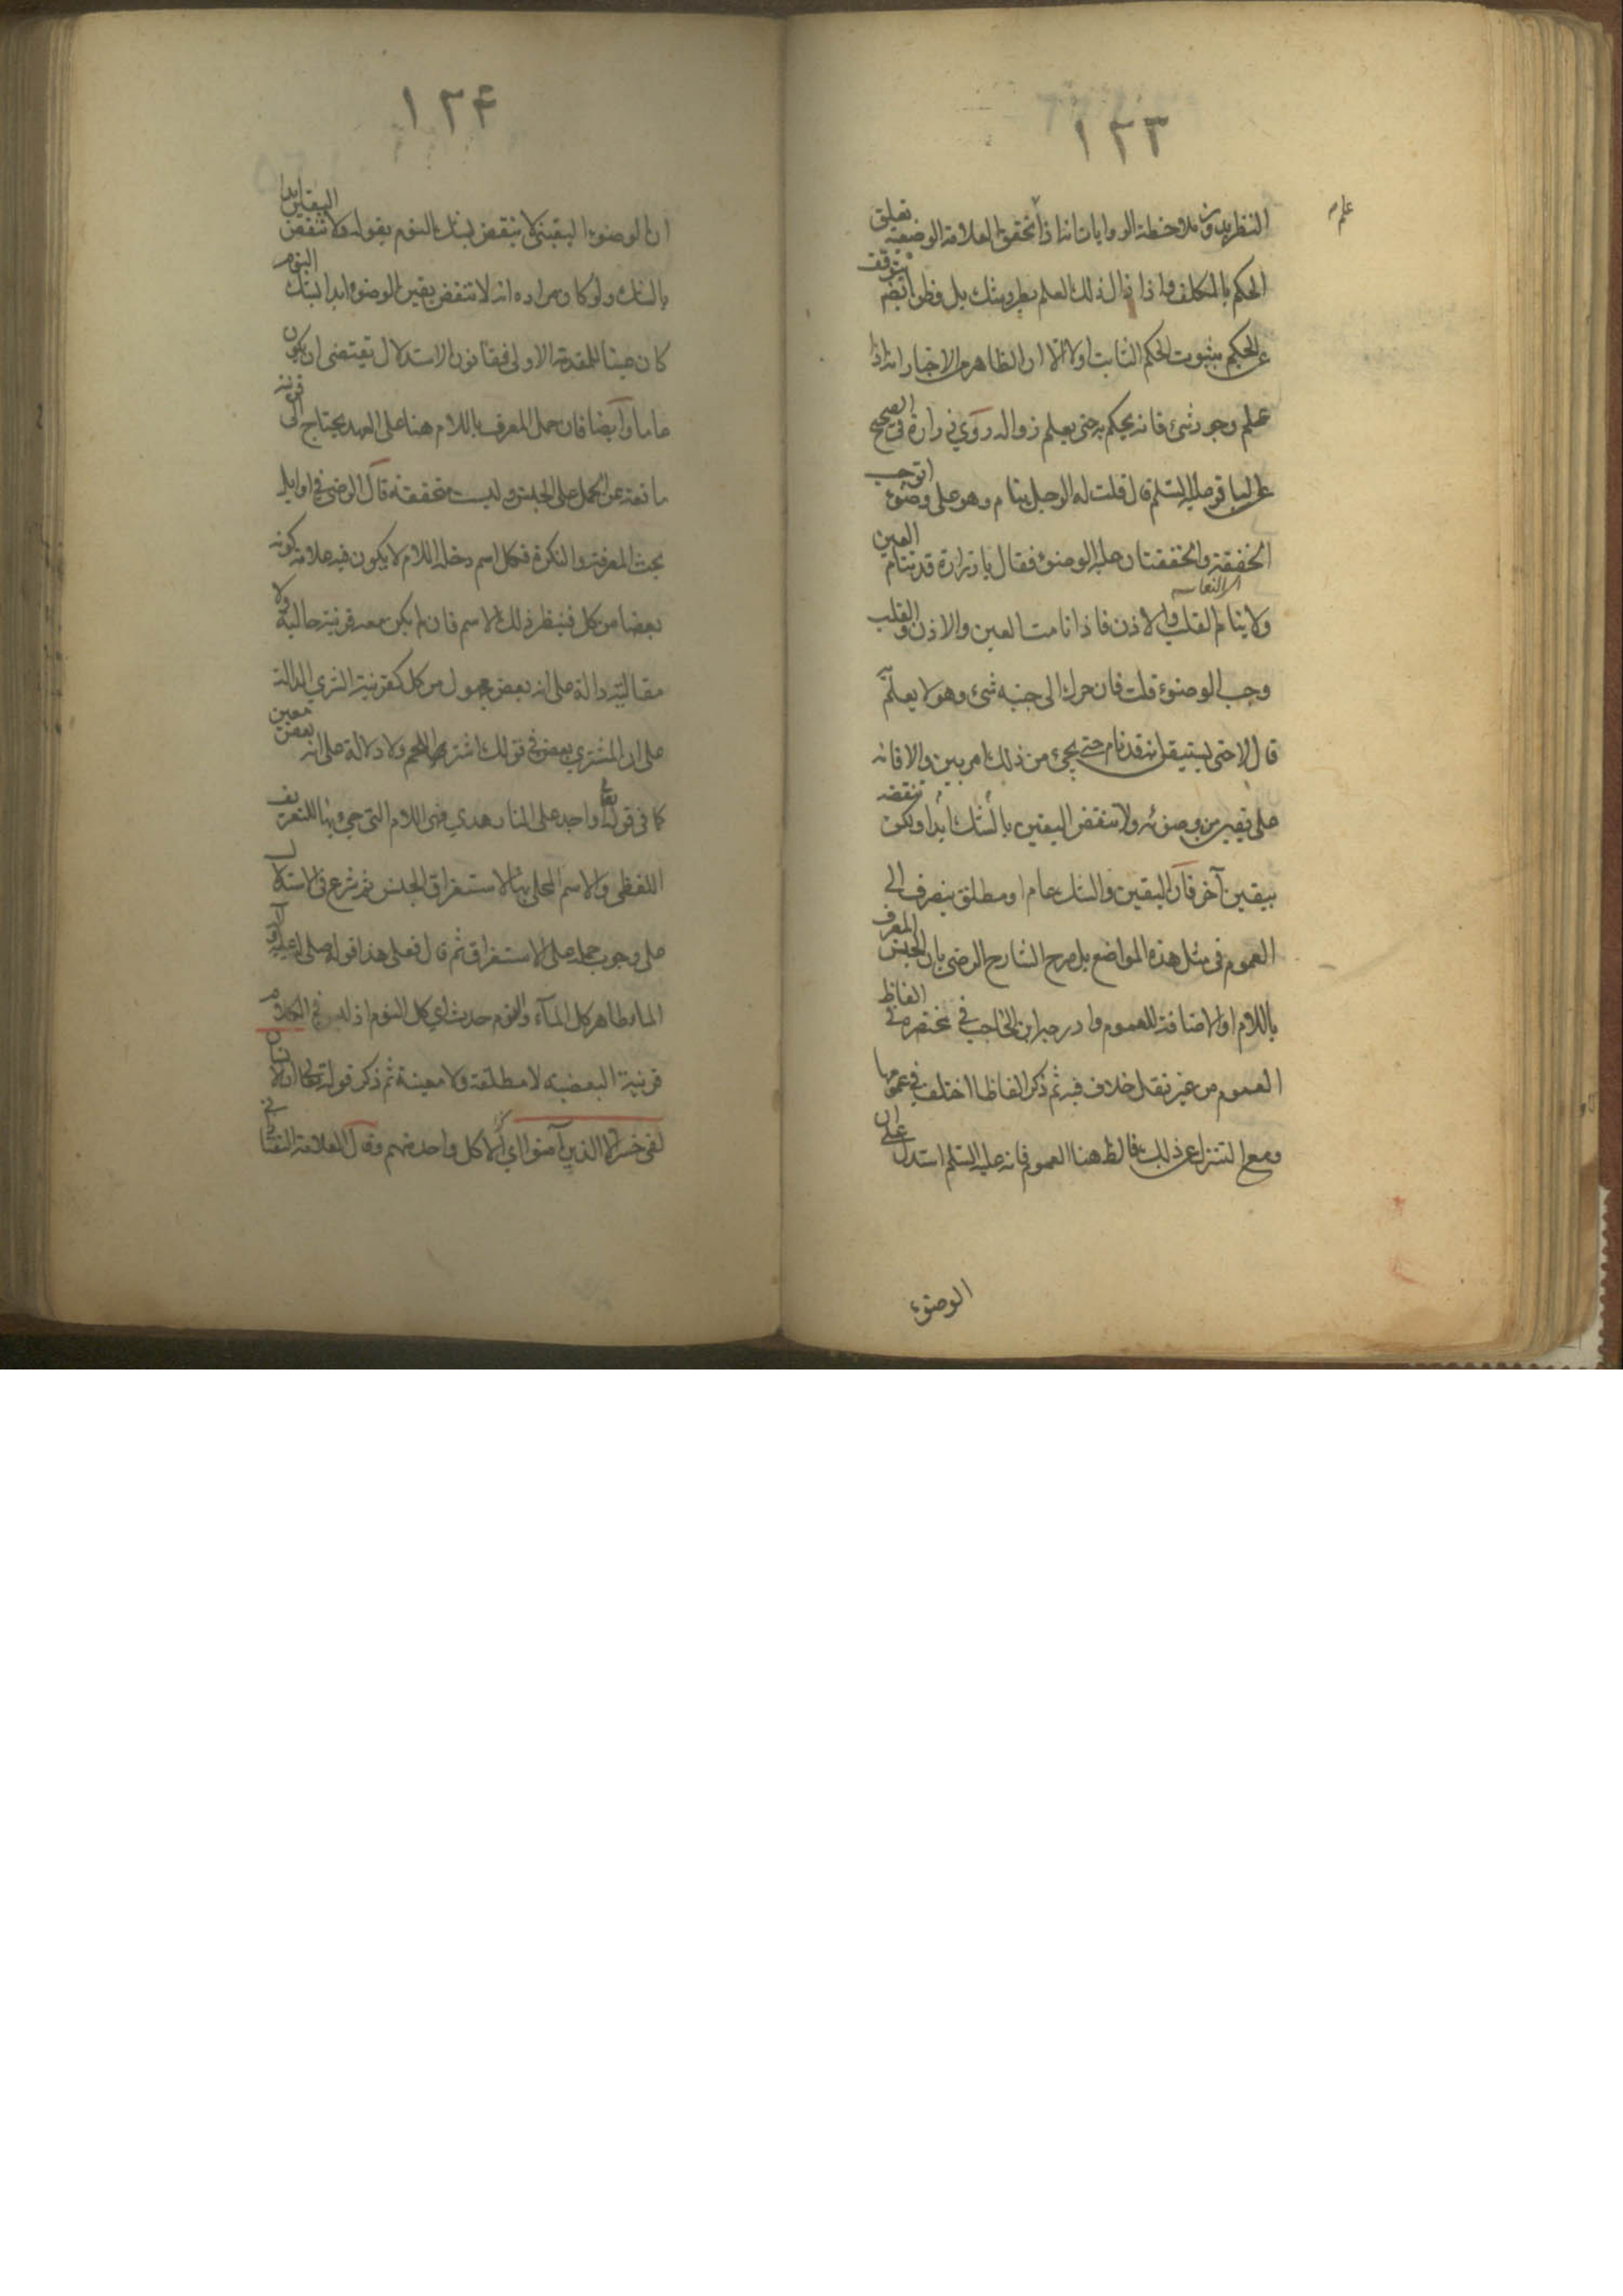 ١٢٣
علم
النظر بدون ملاحظة الروايات انه اذا تحقق العلامة الوضعية تعلق
الحكم بالمكلف واذا زال ذلك العلم بطرو شك بل وظن ايضا يتوقف
عن الحكم بثبوت الحكم الثابت اولا الا ان الظاهر من الاخبار انه اذا
علم وجود شئ فانه يحكم به حتى يعلم زواله روى زرارة في الصحيح
عن الباقر عليه السلم قال قلت له الرجل ينام وهو على وضوء اتوجب
الخفقة والخفقتان عليه الوضوء فقال يا زرارة قد تنام العين
ولا ينام القلب والاذن فاذا نامت العين والاذن والقلب
وجب الوضوء قلت فان حرك الى جنبه شئ وهو لا يعلم به
قال لا حتى يستيقن انه قد نام حتى يجئ من ذلك امر بين والا فانه
على يقين من وضوئه ولا تنقض اليقين بالشك ابدا ولكن تنقضه
بيقين آخر فان اليقين والشك عام او مطلق ينصرف الى
العموم في مثل هذه المواضع بل صرح الشارح الرضى بان الجنس المعرف
باللام او الاضافة للعموم وادرجه ابن الحاجب في مختصره في الفاظ
العموم من غير نقل خلاف فيه ثم ذكر الفاظا اختلف في عمومها
ومع التنزل عن ذلك فالظ هنا العموم فانه عليه السلم استدل على ان
الوضوء
١٢۴
ان الوضوء اليقيني لا ينقض بشك النوم بقوله ولا تنقض اليقين ابدا
بالشك ولو كان مراده انه لا تنقض يقين الوضوء ابدا بشك النوم
كان عينا للمقدمة الاولى فقانون الاستدلال يقتضى ان يكون
عاما وايضا فان حمل المعرف باللام هنا على العهد يحتاج الى قرينة
مانعة عن الحمل على الجنس وليست متحققة قال الرضى في اوايل
بحث المعرفة والنكرة فكل اسم دخله اللام لا يكون فيه علامة كونه
بعضا من كل فينظر ذلك الاسم فان لم يكن معه قرينة حالية ولا
مقالية دالة على انه بعض مجهول من كل كقرينة الشرى الدالة
على ان المشترى بعض في قولك اشتر اللحم ولا دلالة على انه بعض معين
كما في قوله تعا او اجد على النار هدي فهى اللام التى جئ بها للتعريف
اللفظى والاسم المحلى بها لاستغراق الجنس ثم شرع في الاستدلال
على وجوب حمله على الاستغراق ثم قال فعلى هذا قوله صلى الله عليه وآله
الماء طاهر كل الماء والنوم حدث اى كل النوم اذ ليس في الكلام
قرينة البعضية لا مطلقة ولا معينة ثم ذكر قوله تعالى ان الانسان
لفى خسر الا الذين آمنوا اي الا كل واحد منهم وقال العلامة التفتازاني